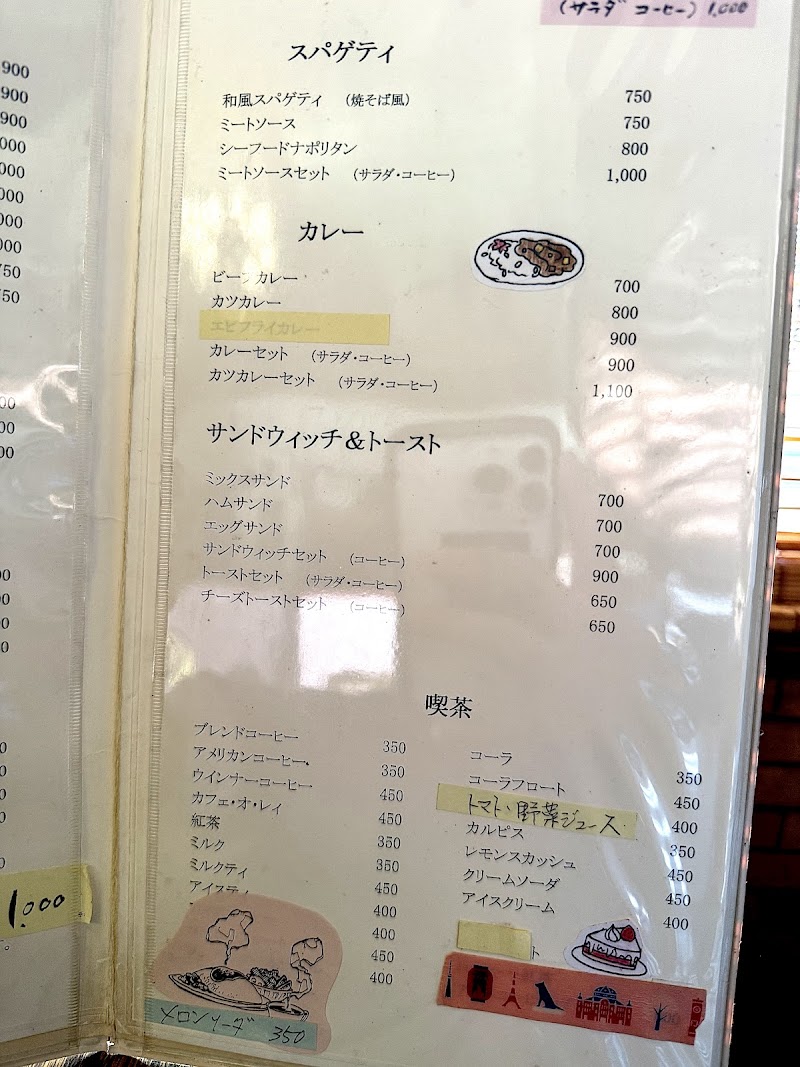 900
900
900
000
000
000
000
000
750
750
00
00
00
00
00
00
0
0
0
0
0
0
1,000
(サラダ コーヒー) 1,000
スパゲティ
和風スパゲティ (焼そば風) 750
ミートソース 750
シーフードナポリタン 800
ミートソースセット (サラダ・コーヒー) 1,000
カレー
ビーフカレー 700
カツカレー 800
エビフライカレー 900
カレーセット (サラダ・コーヒー) 900
カツカレーセット (サラダ・コーヒー) 1,100
サンドウィッチ&トースト
ミックスサンド 700
ハムサンド 700
エッグサンド 700
サンドウィッチセット (コーヒー) 900
トーストセット (サラダ・コーヒー) 650
チーズトーストセット (コーヒー) 650
喫茶
ブレンドコーヒー 350
アメリカンコーヒー 350
ウインナーコーヒー 450
カフェ・オ・レィ 450
紅茶 350
ミルク 350
ミルクティ 450
アイスティ 400
400
450
400
メロンソーダ 350
コーラ 350
コーラフロート 450
トマト、野菜ジュース 400
カルピス 350
レモンスカッシュ 450
クリームソーダ 450
アイスクリーム 400
ト